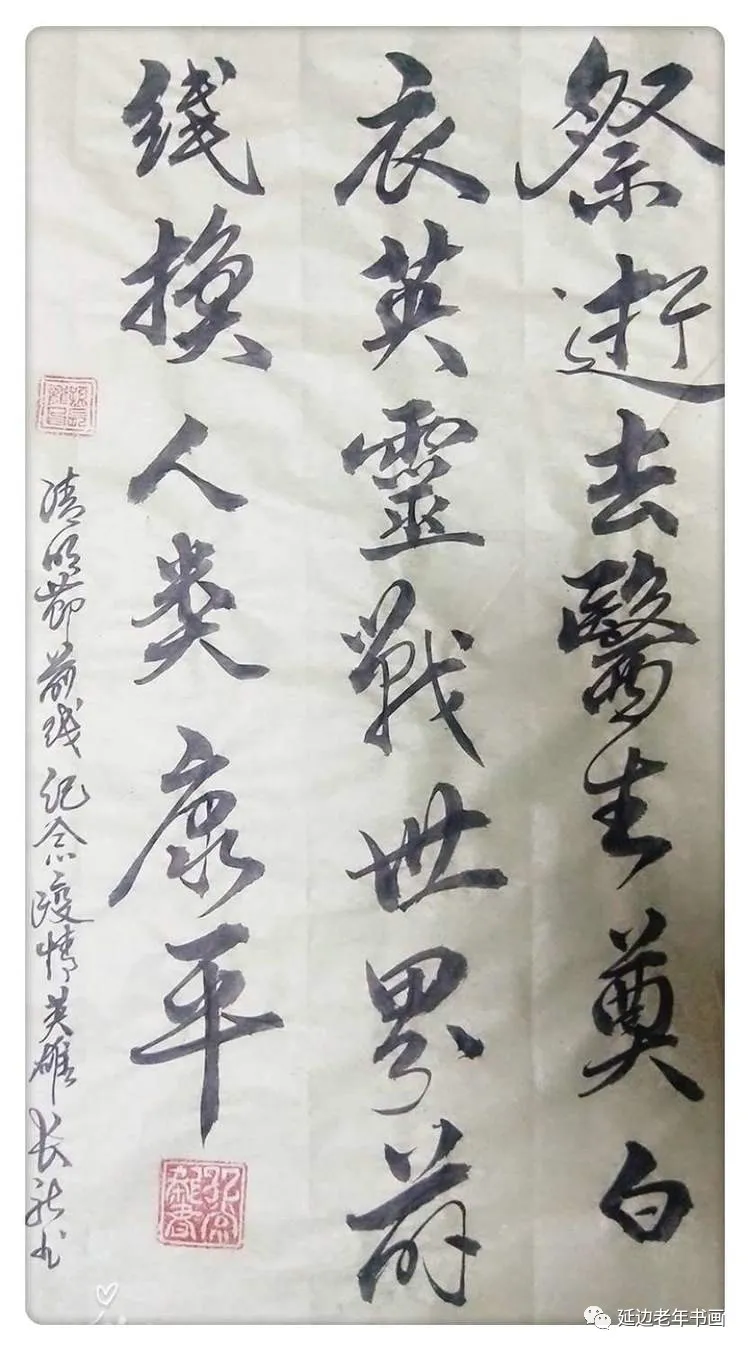 祭逝去醫生奠白
衣英靈戰世界前
线换人类康平
清明节前线纪念疫情英雄 长龙书
延边老年书画